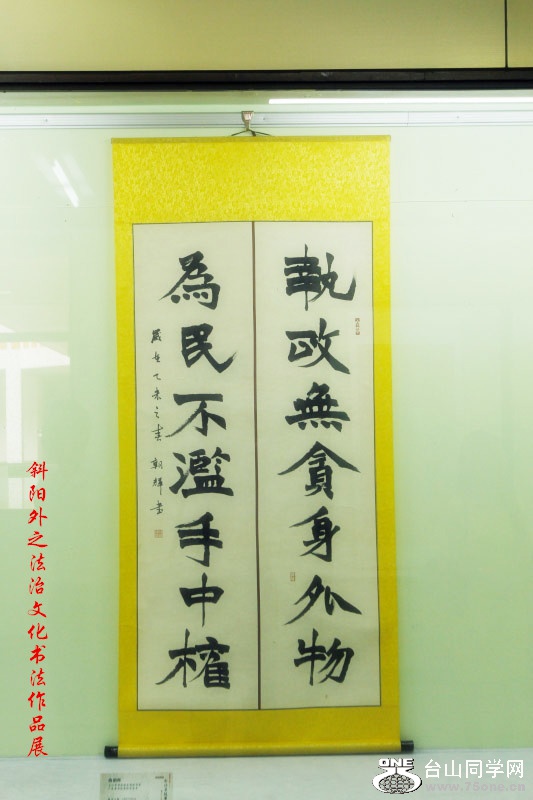 執政無貪身外物
為民不濫手中權
歲在乙未之春 朝輝書
斜阳外之法治文化书法作品展
ONE 台山同学网
www.75one.cn